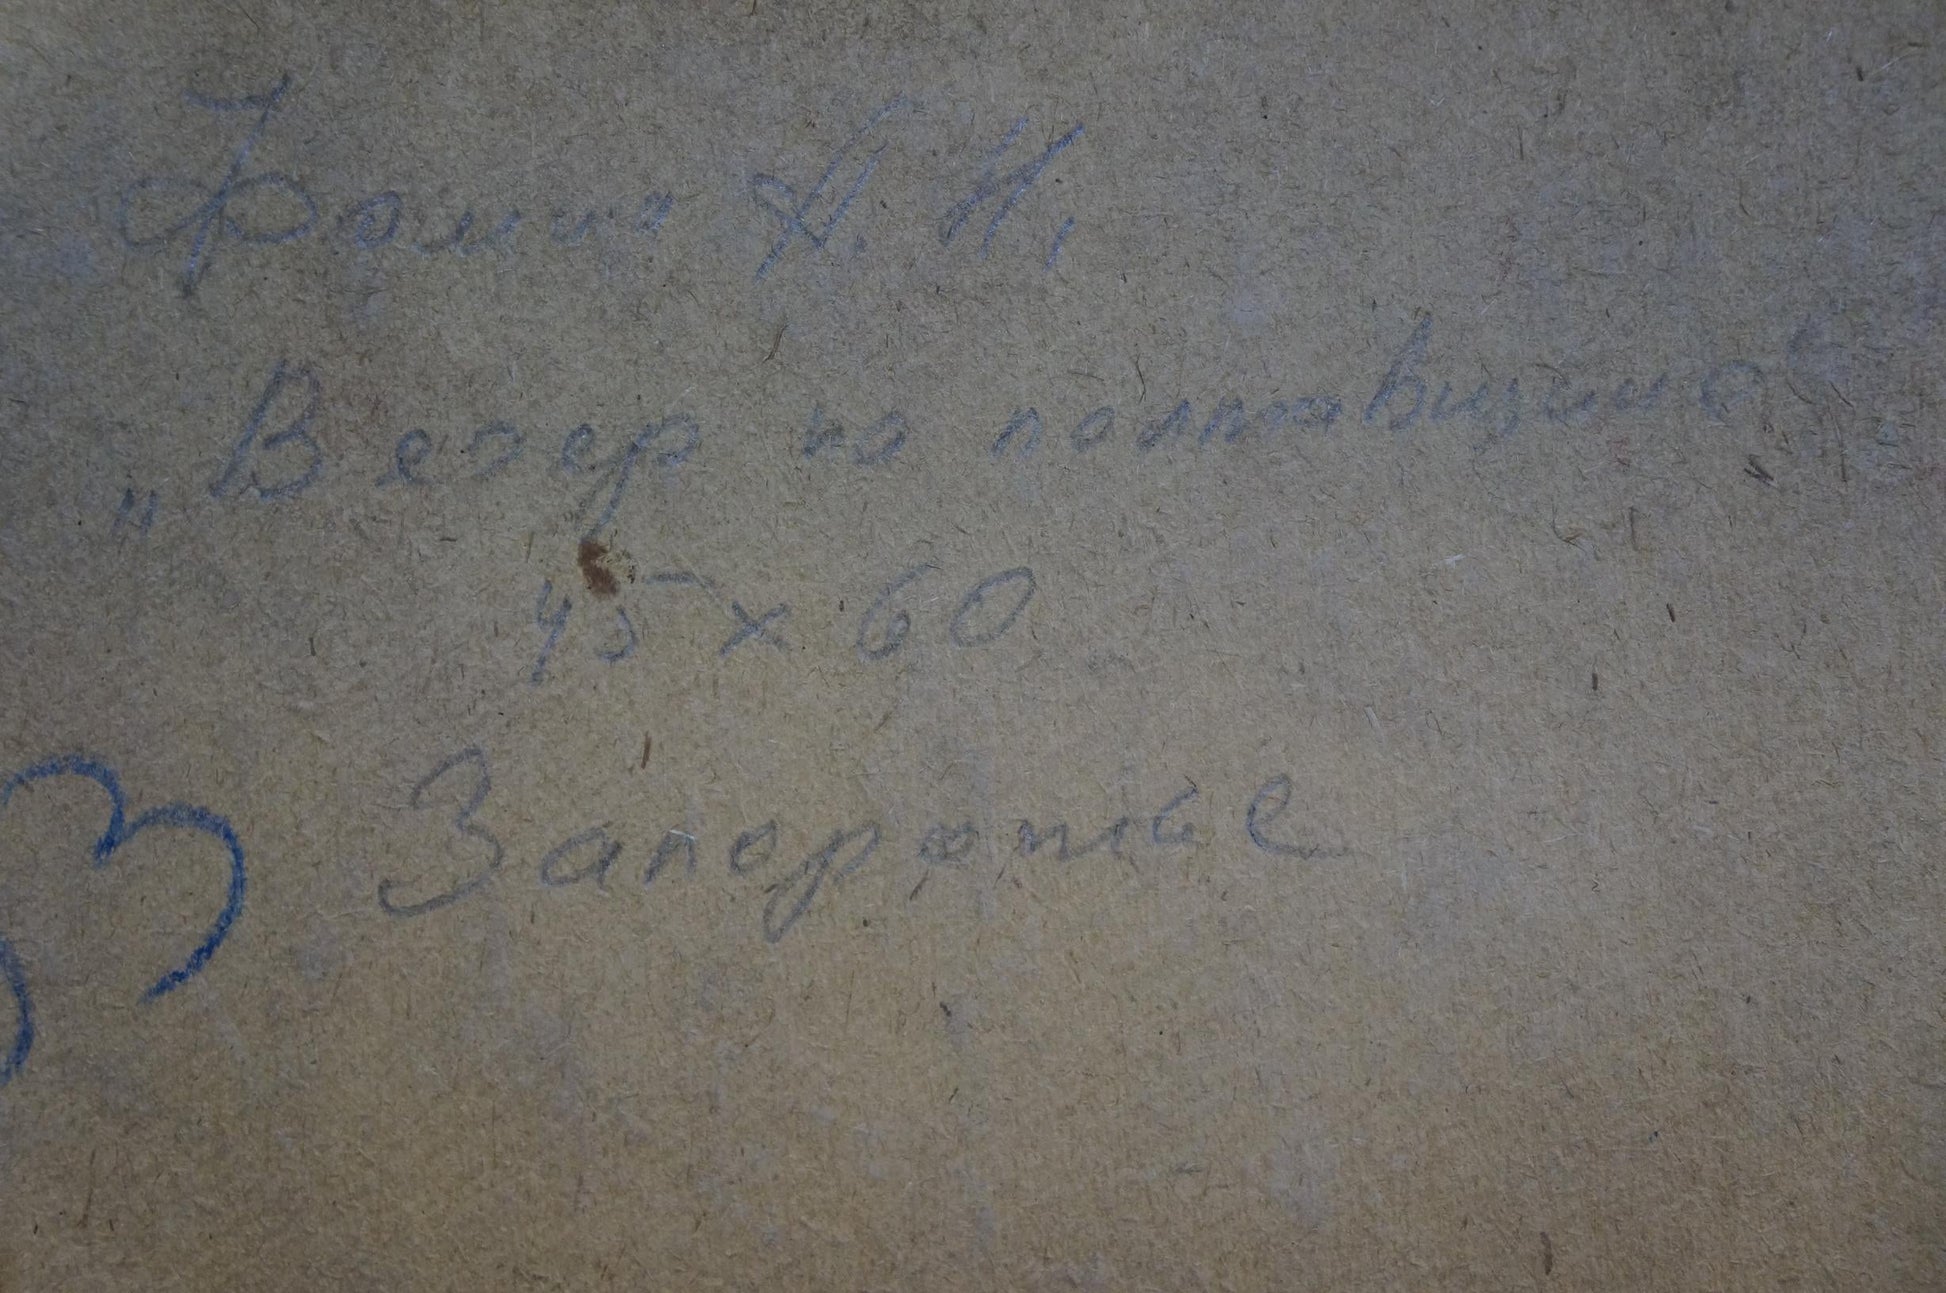 Фомин А. Н.
„Вечер на полтавщине“
45 x 60
Запорожье